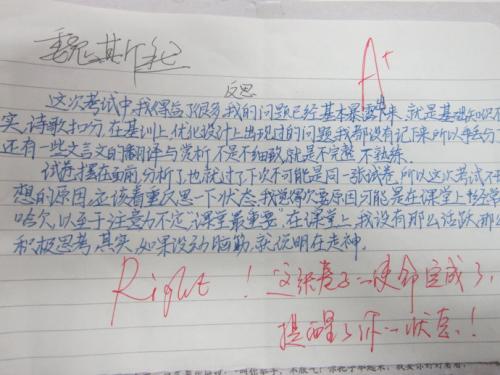 A+
反思
这次考试中我得与了很多我的问题已经基本暴露下来,就是基础知识不
实,诗歌扣分,在基训上,优化设计上出现过的问题,我都没有记下来所以丢分了
还有一些文言文的翻译与赏析不是不细致就是不完整,不熟练.
试卷摆在面前分析了也就过了下次不可能是同一张试卷,所以这次考试不
想的原因,应该着重反思一下状态,我觉得次要原因可能是在课堂上经常
哈欠,以至于注意力不定"课堂最重要"在课堂上,我没有那么活跃那么
积极思考,其实,如果没动脑筋,就说明在走神.
Right ! 这张卷子一使命完成了,
提醒了你一状态!